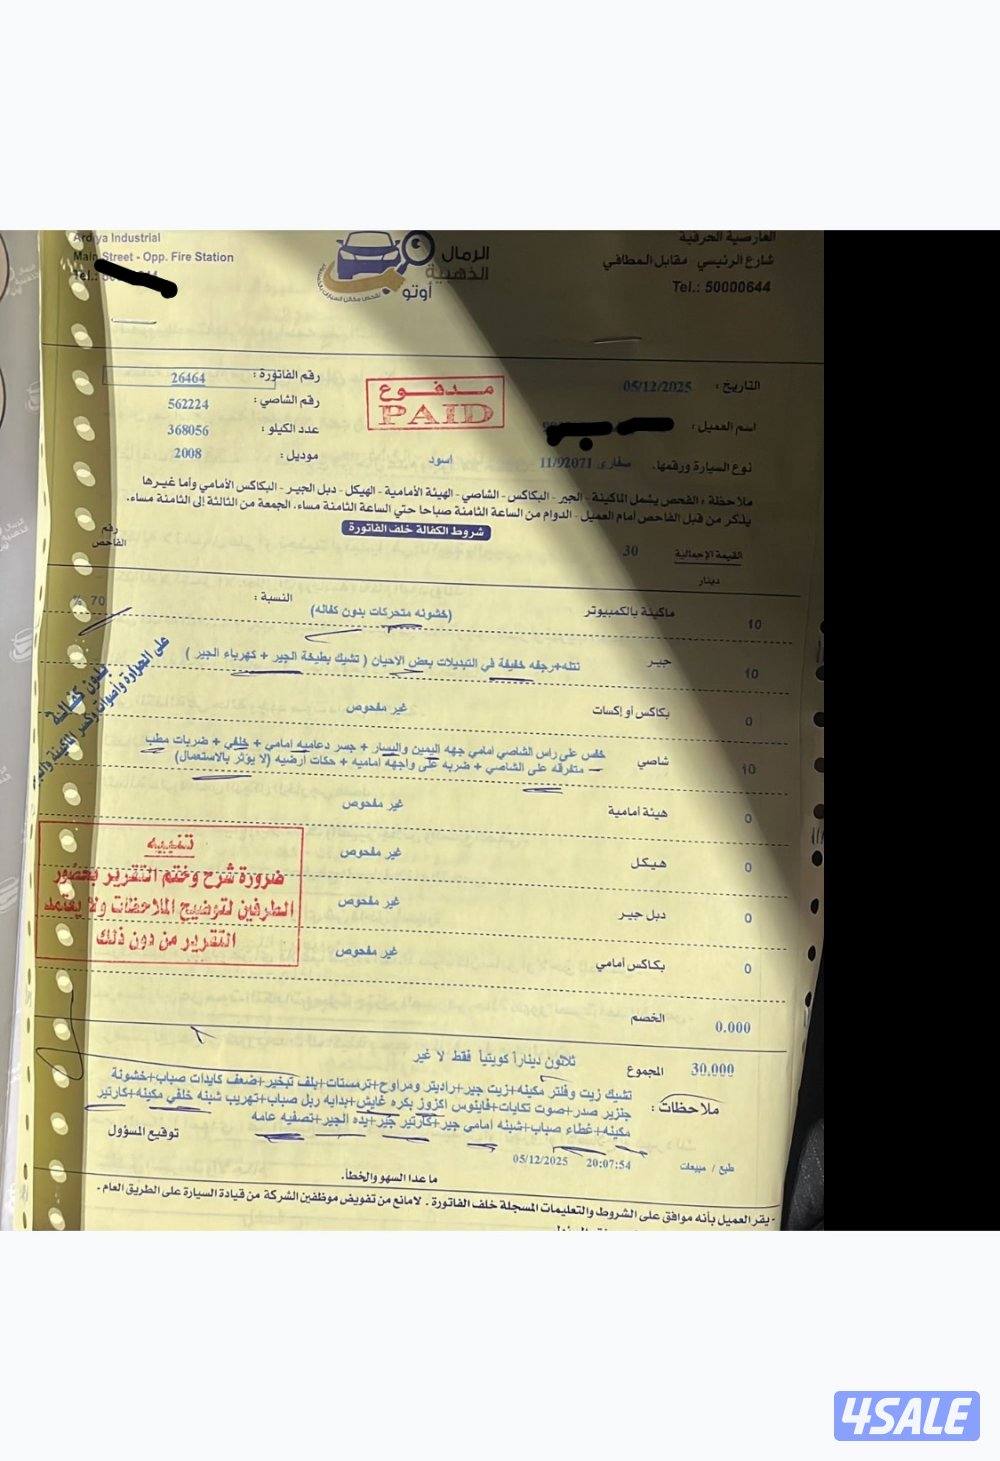 Ardiya Industrial
Main Street - Opp. Fire Station
Tel.:
الرمال
الذهبية
أوتو
العارضية الحرفية
شارع الرئيسي مقابل المطافي
Tel.: 50000644
رقم الفاتورة : 26464
رقم الشاصي : 562224
عدد الكيلو : 368056
موديل : 2008
مدفوع
PAID
التاريخ : 05/12/2025
اسم العميل :
نوع السيارة ورقمها. سفاري 11/92071 اسود
ملاحظة : الفحص يشمل الماكينة - الجير - البكاكس - الشاصي - الهيئة الأمامية - الهيكل - دبل الجير - البكاكس الأمامي وأما غيرها
يذكر من قبل الفاحص أمام العميل - الدوام من الساعة الثامنة صباحا حتي الساعة الثامنة مساء. الجمعة من الثالثة إلى الثامنة مساء.
شروط الكفالة خلف الفاتورة
رقم
الفاحص
القيمة الإجمالية 30
دينار
10 ماكينة بالكمبيوتر (خشونه متحركات بدون كفاله) النسبة : 70 %
10 جير نتله+رجفه خفيفة في التبديلات بعض الاحيان ( تشيك بطيخة الجير + كهرباء الجير )
بدون كفالة
على الحرارة وأصوات وكسر الماكينة
0 بكاكس أو إكسات غير مفحوص
10 شاصي خفس على راس الشاصي امامي جهه اليمين واليسار + جسر دعاميه امامي + خلفي + ضربات مطب
متفرقه على الشاصي + ضربه على واجهه اماميه + حكات ارضيه (لا يؤثر بالاستعمال)
0 هيئة أمامية غير مفحوص
0 هيكل غير مفحوص
0 دبل جير غير مفحوص
0 بكاكس أمامي غير مفحوص
تنبيه
ضرورة شرح وختم التقرير بحضور
الطرفين لتوضيح الملاحظات ولا يعتمد
التقرير من دون ذلك
0.000 الخصم
30.000 المجموع ثلاثون ديناراً كويتياً فقط لا غير
ملاحظات : تشيك زيت وفلتر مكينه+زيت جير+راديتر ومراوح+ترمستات+بلف تبخير+ضعف كايدات صباب+خشونة
جنزير صدر+صوت تكايات+فاينوس اكزوز+بكره غايش+بدايه ربل صباب+تهريب شبنه خلفي مكينه+كارتير
مكينه+غطاء صباب+شبنه امامي جير+كارتير جير+بده الجير+تصفيه عامه
طبع / مبيعات 20:07:54 05/12/2025
توقيع المسؤول
ما عدا السهو والخطأ.
- يقر العميل بأنه موافق على الشروط والتعليمات المسجلة خلف الفاتورة . لامانع من تفويض موظفين الشركة من قيادة السيارة على الطريق العام .
4SALE